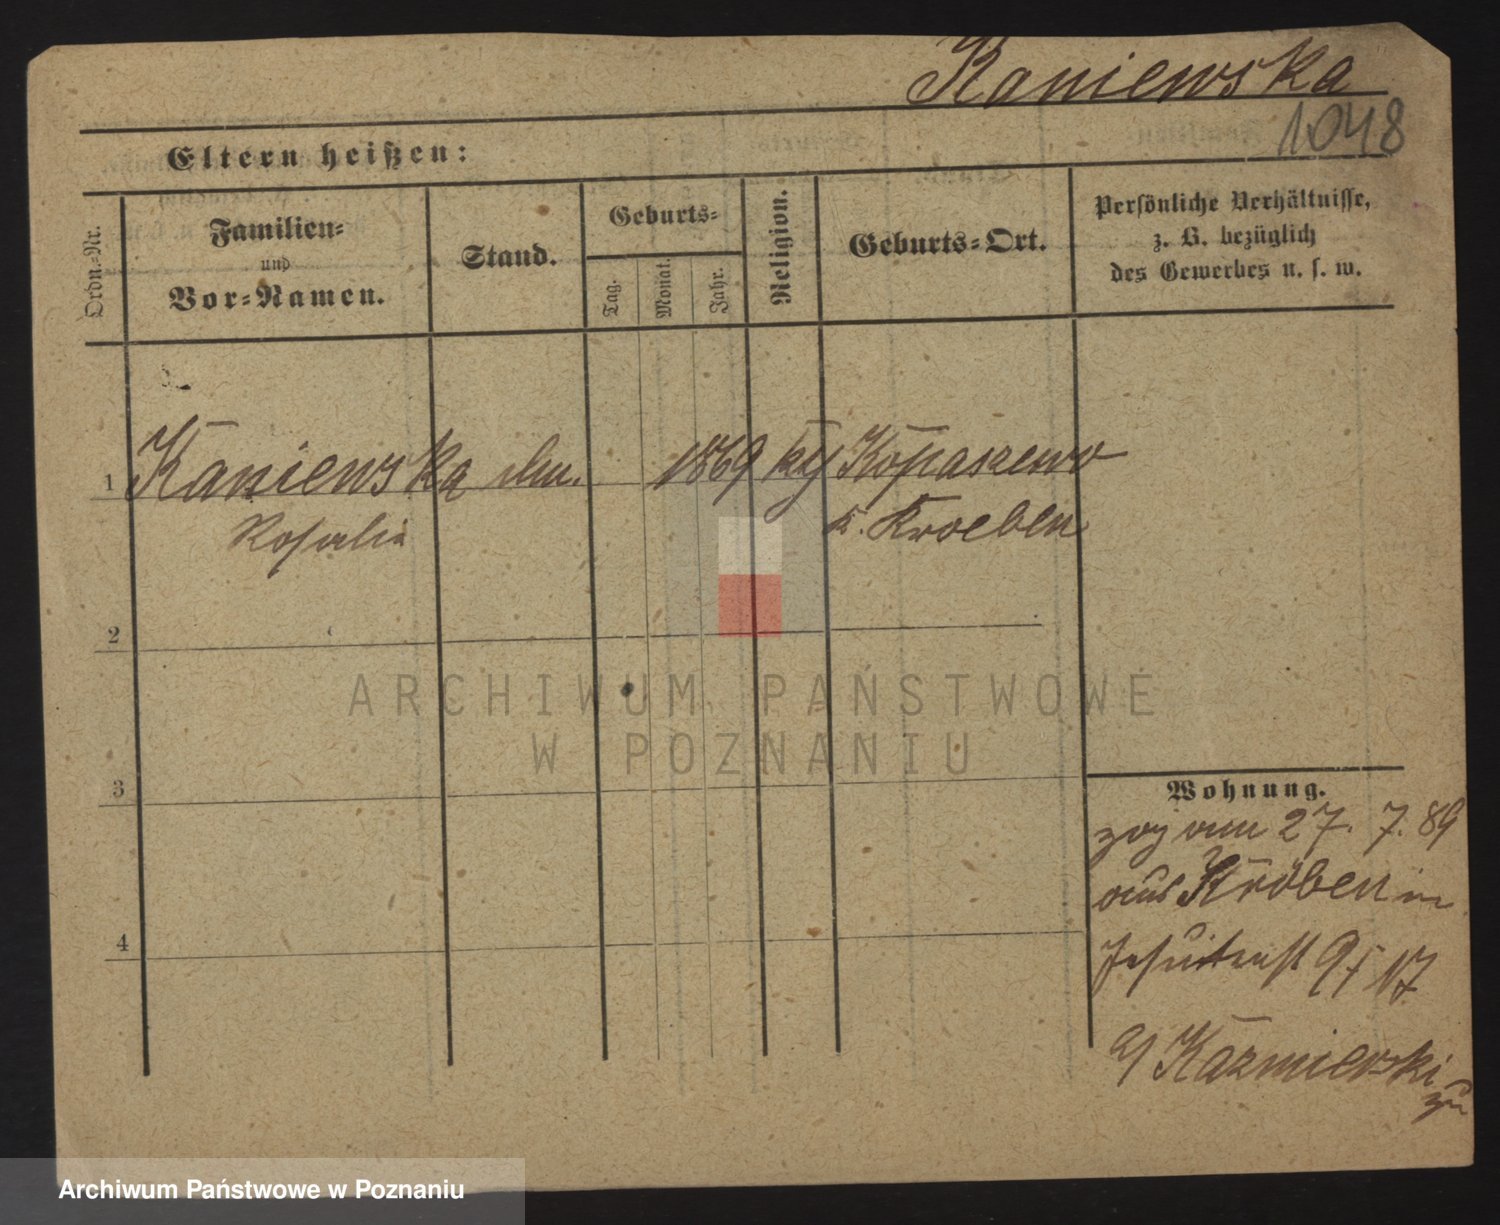 Kaniewska
1048
Eltern heißen:
Ordn.-Nr.
Familien-
und
Vor-Namen.
Stand.
Geburts-
Tag.
Monat.
Jahr.
Religion.
Geburts-Ort.
Persönliche Verhältnisse,
z. B. bezüglich
des Gewerbes u. s. w.
1 Kaniewska 1869 Kopaszewo
Rosalie K. Kroeben
2
3
4
ARCHIWUM PAŃSTWOWE
W POZNANIU
Wohnung.
zog am 27. 7. 89
aus Kröben in
Jesuitenst 9/17
Kazmierski
zu
Archiwum Państwowe w Poznaniu